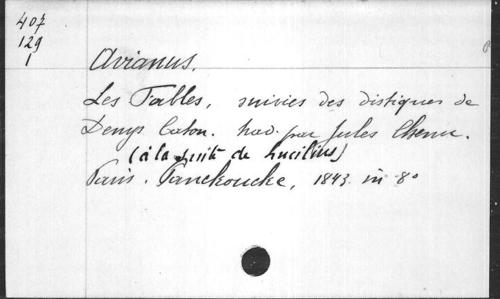 407
129
1
Avianus.
Les Fables, suivies des distiques de
Denys Caton. trad. par Jules Chenu.
(à la suite de Lucilius)
Paris. Panckoucke, 1843 in 8°